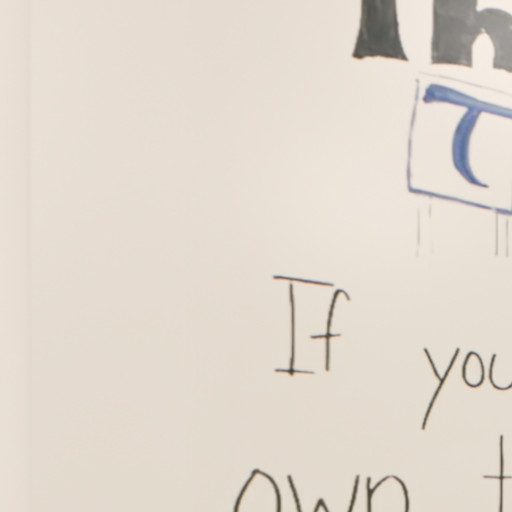 Th
τ
If you
own t